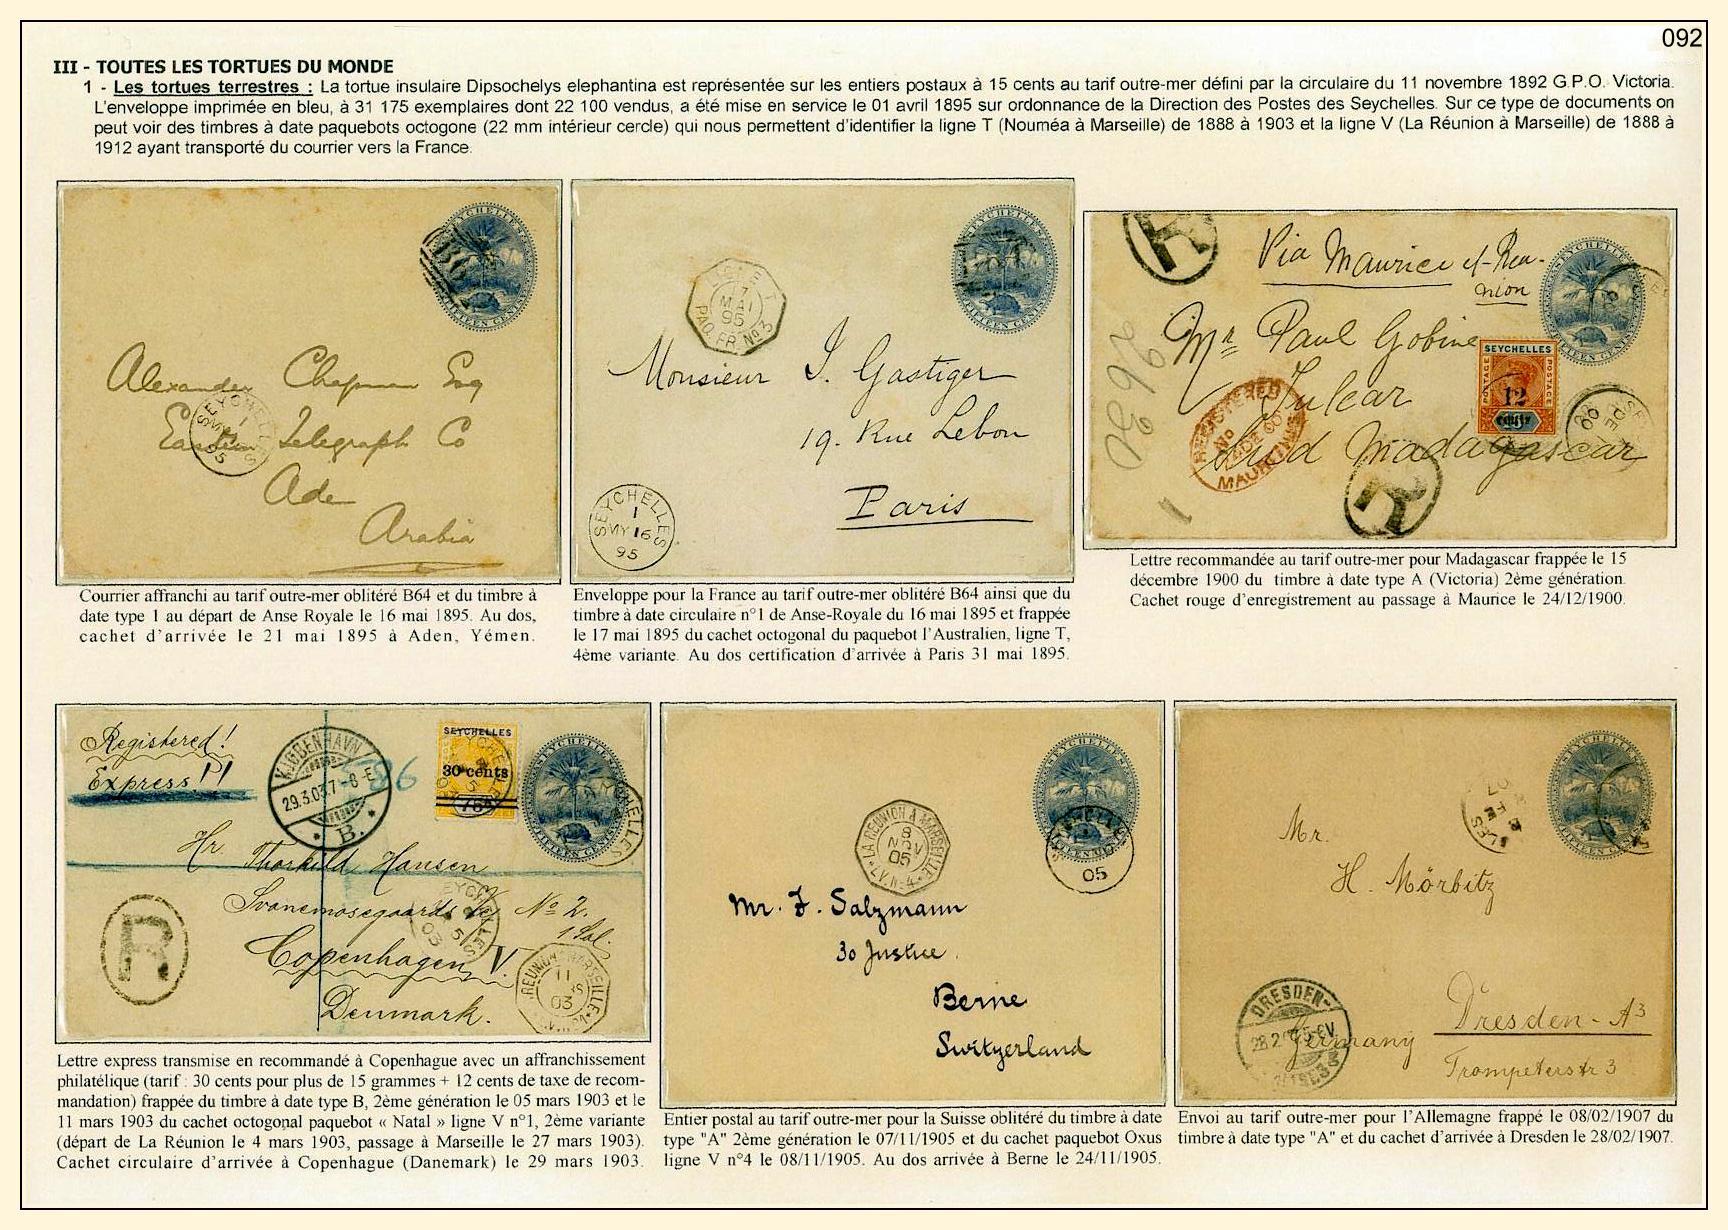 092
III - TOUTES LES TORTUES DU MONDE
1 - Les tortues terrestres : La tortue insulaire Dipsochelys elephantina est représentée sur les entiers postaux à 15 cents au tarif outre-mer défini par la circulaire du 11 novembre 1892 G.P.O. Victoria.
L'enveloppe imprimée en bleu, à 31 175 exemplaires dont 22 100 vendus, a été mise en service le 01 avril 1895 sur ordonnance de la Direction des Postes des Seychelles. Sur ce type de documents on
peut voir des timbres à date paquebots octogone (22 mm intérieur cercle) qui nous permettent d'identifier la ligne T (Nouméa à Marseille) de 1888 à 1903 et la ligne V (La Réunion à Marseille) de 1888 à
1912 ayant transporté du courrier vers la France.
SEYCHELLES
FIFTEEN CENTS
B64
Alexander Chapman Esq
Eastern Telegraph Co
Ade
Arabia
SEYCHELLES
1
95
Courrier affranchi au tarif outre-mer oblitéré B64 et du timbre à
date type 1 au départ de Anse Royale le 16 mai 1895. Au dos,
cachet d'arrivée le 21 mai 1895 à Aden, Yémen.
SEYCHELLES
FIFTEEN CENTS
LIGNE T
17
MAI
95
PAQ. FR. No 3
Monsieur J. Gastiger
19. Rue Lebon
Paris
SEYCHELLES
1
MY 16
95
Enveloppe pour la France au tarif outre-mer oblitéré B64 ainsi que du
timbre à date circulaire n°1 de Anse-Royale du 16 mai 1895 et frappée
le 17 mai 1895 du cachet octogonal du paquebot l'Australien, ligne T,
4ème variante. Au dos certification d'arrivée à Paris 31 mai 1895.
R
Via Maurice et Reu-
nion
SEYCHELLES
FIFTEEN CENTS
Mr Paul Gobine
Tulear
Sud Madagascar
SEYCHELLES
POSTAGE
POSTAGE
12
cents
REGISTERED
No
DE 00
MAURITIUS
R
Lettre recommandée au tarif outre-mer pour Madagascar frappée le 15
décembre 1900 du timbre à date type A (Victoria) 2ème génération.
Cachet rouge d'enregistrement au passage à Maurice le 24/12/1900.
Registered!
Express!!
KJØBENHAVN
29.3.03.7-8 E
B.
SEYCHELLES
30 cents
SEYCHELLES
FIFTEEN CENTS
Hr. Thorkild Hansen
Svanemosegaards No 2.
1 Sal.
Copenhagen V.
Denmark.
R
REUNION MARSEILLE
11
03
Lettre express transmise en recommandé à Copenhague avec un affranchissement
philatélique (tarif : 30 cents pour plus de 15 grammes + 12 cents de taxe de recom-
mandation) frappée du timbre à date type B, 2ème génération le 05 mars 1903 et le
11 mars 1903 du cachet octogonal paquebot « Natal » ligne V n°1, 2ème variante
(départ de La Réunion le 4 mars 1903, passage à Marseille le 27 mars 1903).
Cachet circulaire d'arrivée à Copenhague (Danemark) le 29 mars 1903.
SEYCHELLES
LA REUNION A MARSEILLE
8
NOV
05
L.V. N°4
05
Mr. F. Salzmann
30 Justice
Berne
Switzerland
Entier postal au tarif outre-mer pour la Suisse oblitéré du timbre à date
type "A" 2ème génération le 07/11/1905 et du cachet paquebot Oxus
ligne V n°4 le 08/11/1905. Au dos arrivée à Berne le 24/11/1905.
SEYCHELLES
FIFTEEN CENTS
Mr.
H. Mörbitz
DRESDEN-
Dresden - A3
Germany
Trompeterstr 3
Envoi au tarif outre-mer pour l'Allemagne frappé le 08/02/1907 du
timbre à date type "A" et du cachet d'arrivée à Dresden le 28/02/1907.